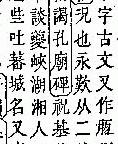 字古文又作
况也永歎从二
謁孔廟碑祀基
談夔峽湖湘人
些吐蕃城名又